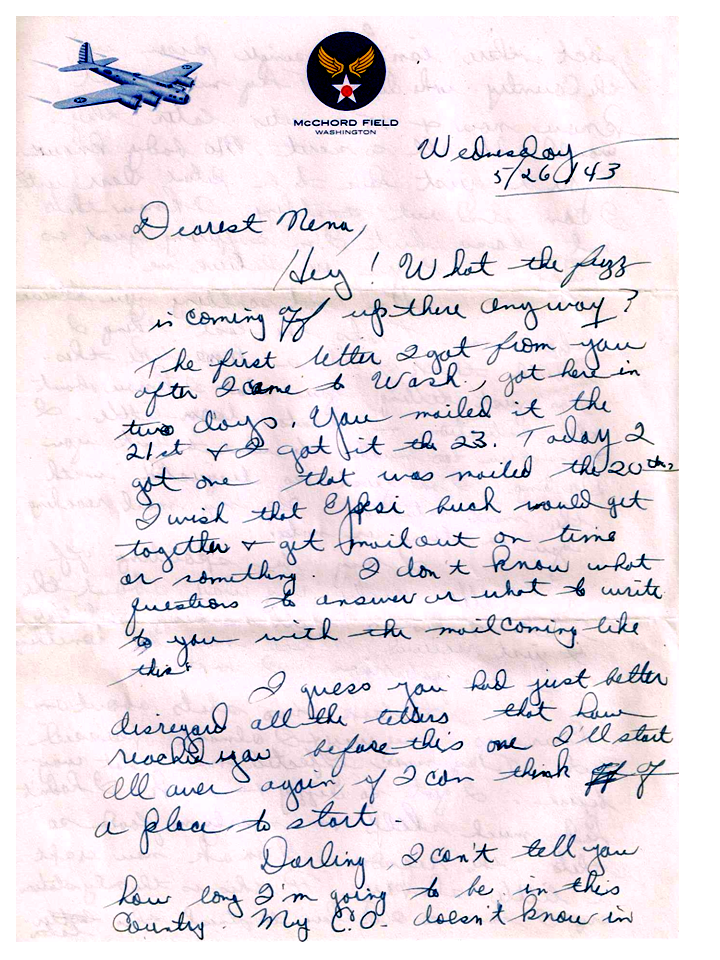 McCHORD FIELD
WASHINGTON
Wednesday
5/26/43
Dearest Nena,
Hey! What the fuzz
is coming off up there anyway?
The first letter I got from you
after I came to Wash., got here in
two days. You mailed it the
21st & I got it the 23. Today I
got one that was mailed the 20th.
I wish that Ypsi buch would get
together & get mail out on time
or something. I don't know what
questions to answer or what to write
to you with the mail coming like
this.
I guess you had just better
disregard all the letters that have
reached you before this one I'll start
all over again, if I can think of
a place to start.
Darling, I can't tell you
how long I'm going to be in this
Country. My C.O. doesn't know in